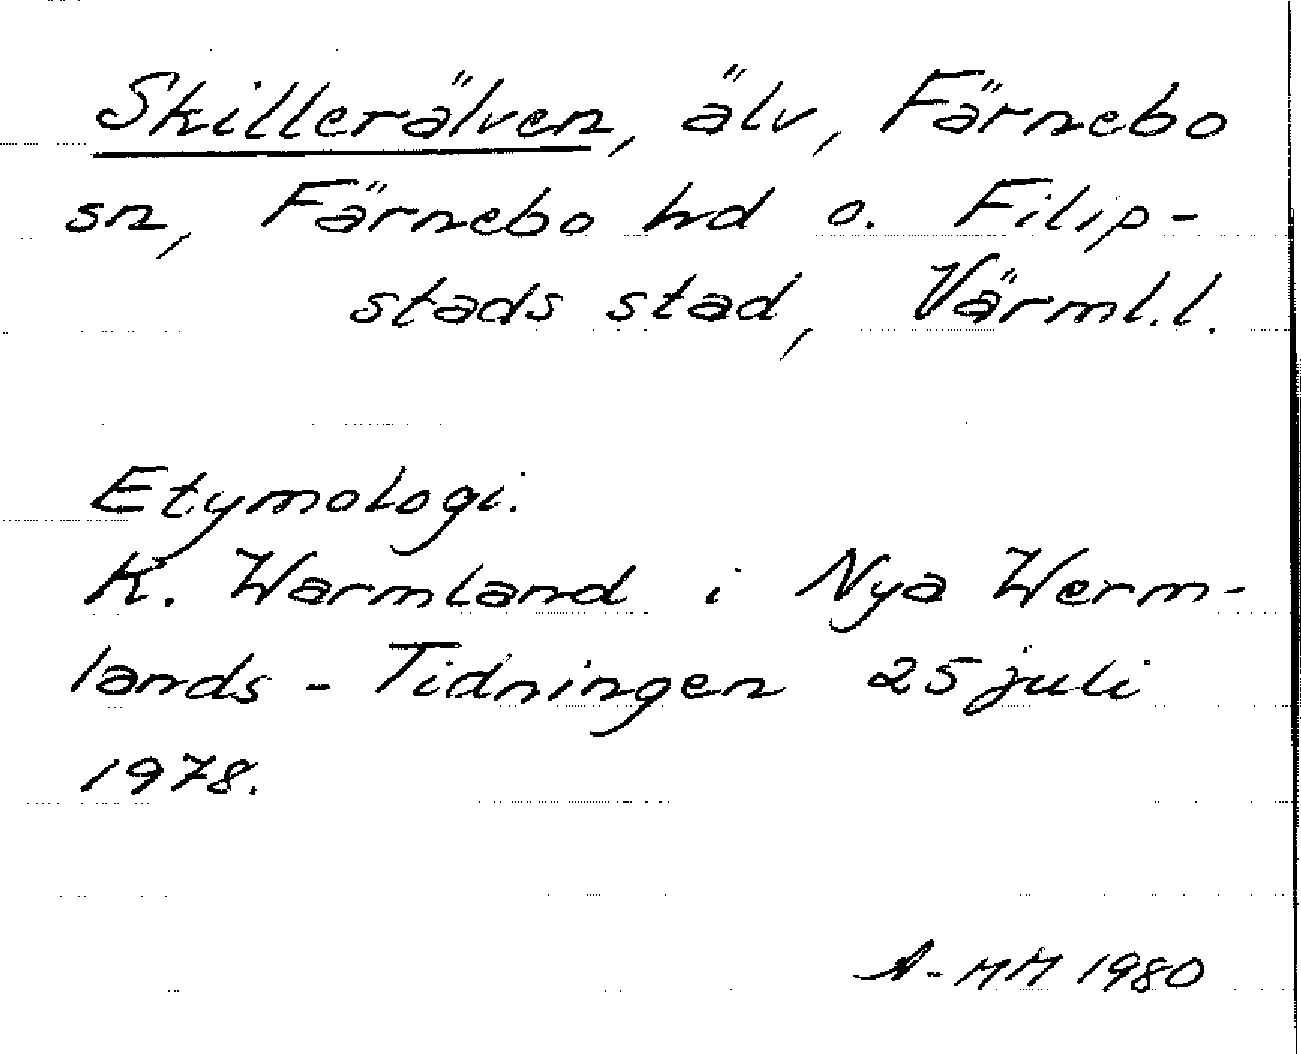 Skillerälven, älv, Färnebo
sn, Färnebo hd o. Filip-
stads stad, Värml.l.
Etymologi.
K. Warmland i Nya Werm-
lands-Tidningen 25 juli
1978.
A-MM 1980